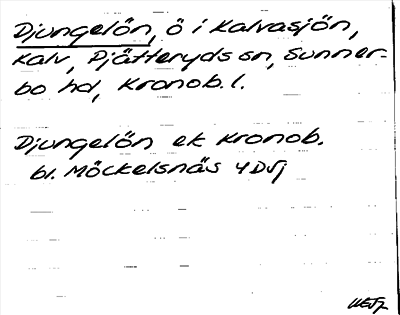 Djungelön, ö i Kalvasjön,
Kalv, Pjätteryds sn, Sunner-
bo hd, Kronob. l.
Djungelön ek Kronob.
bl. Möckelsnäs 4D5j